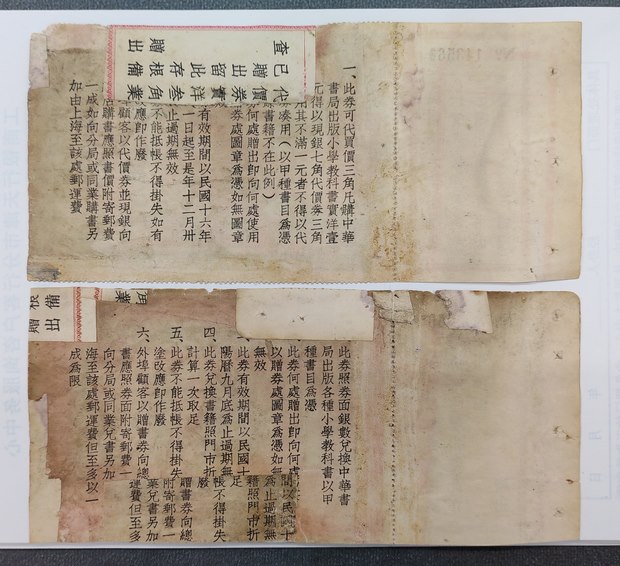 查已代
贈價
出券
此洋
存叁
贈根角
出備業
一、此券可代買價三角凡購中華
書局出版小學教科書實洋壹
元得以現銀七角代價券三角
用其不滿一元者不得以代
湊用(以甲種書目為憑
書籍不在此例)
何處贈出即向何處使用
券處圖章為憑如無圖章
有效期間以民國十六年
一日起至是年十二月卅
止過期無效
不能抵帳不得掛失如有
應即作廢
顧客以代價券並現銀向
購書應照書價附寄郵費
一成如向分局或同業購書另
加由上海至該處郵運費
備業
根
贈出
此券照券面銀數兌換中華書
局出版各種小學教科書以甲
種書目為憑
此券何處贈出即向何處
以贈券處圖章為憑如無
無效
此券有效期間以民國十
陽曆九月底為止過期無
四、此券兌換書籍照門市折
計算一次取足
五、此券不能抵帳不得掛失
塗改應即作廢
六、外埠顧客以贈書券向總
書應照券面附寄郵費一
向分局或同業兌書另加
海至該處郵運費但至多以一
成為限
間以民國十
為止過期無
籍照門市折
足
帳不得掛失
廢
贈書券向總
附寄郵費一
業兌書另加
運費但至多